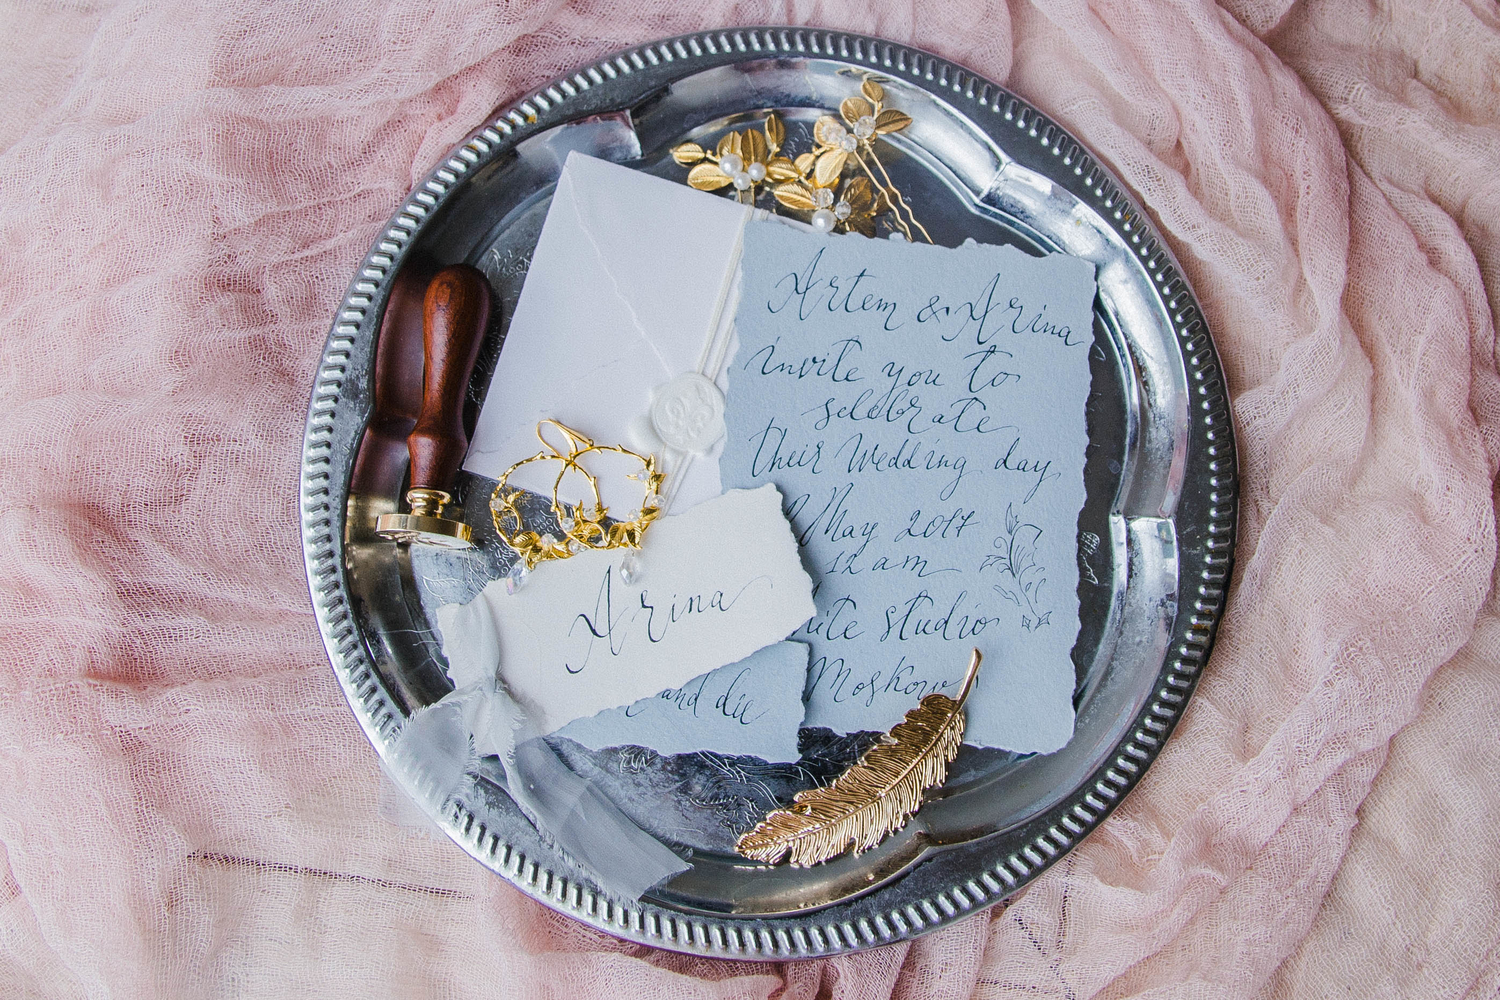 Artem & Arina
invite you to
celebrate
their Wedding day
May 2017
12 am
studio
Moskow
Arina
and die